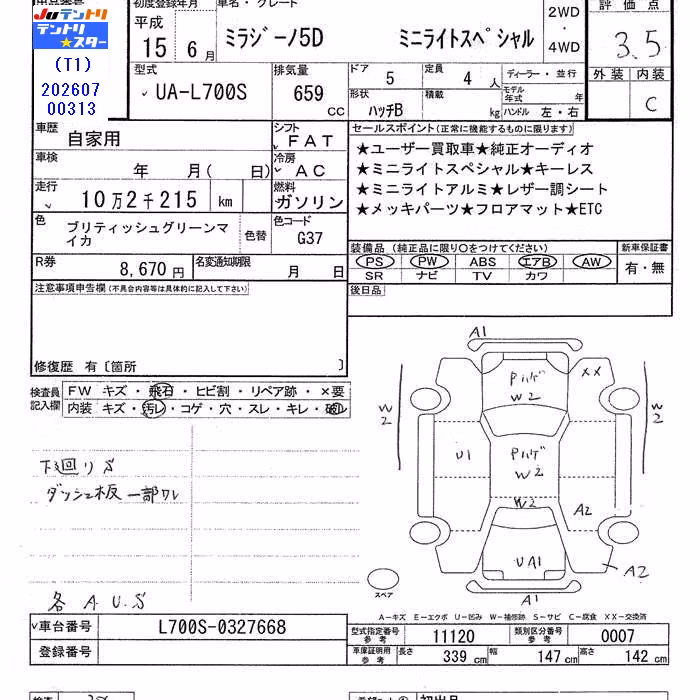 初度登録年月
車名・グレード
評価点
Juテントリ
テントリ
★スター
(T1)
202607
00313
平成
15 6月
ミラジーノ5D ミニライトスペシャル
2WD
・
4WD
3.5
外装 内装
C
型式
UA-L700S
排気量
659 CC
ドア 5
定員 4 人
ディーラー・並行
形状 ハッチB
積載 kg
モデル年式 年
ハンドル 左・右
車歴 自家用
シフト FAT
セールスポイント(正常に機能するものに限ります)
★ユーザー買取車★純正オーディオ
★ミニライトスペシャル★キーレス
★ミニライトアルミ★レザー調シート
★メッキパーツ★フロアマット★ETC
車検 年 月( 日)
冷房 AC
走行 10万2千215 km
燃料 ガソリン
色 ブリティッシュグリーンマイカ
色替
色コード G37
装備品(純正品に限り○をつけてください)
新車保証書
PS PW ABS エアB AW
SR ナビ TV カワ
有・無
R券 8,670円
名変通知期限 月 日
後日品
注意事項申告欄(不具合内容等は具体的に記入して下さい)
修復歴 有〔箇所 〕
検査員記入欄
FW キズ・飛石・ヒビ割・リペア跡・×要
内装 キズ・汚レ・コゲ・穴・スレ・キレ・破レ
下廻りS
ダッシュ板一部ワレ
各 A.U.S
A1
Pハゲ
W2
XX
W2
W2
U1
Pハゲ
W2
W2
A2
UA1
A2
A1
スペア
A－キズ E－エクボ U－凹み W－補修跡 S－サビ C－腐食 XX－交換済
車台番号 L700S-0327668
登録番号
型式指定番号参考 11120
類別区分番号参考 0007
車庫証明用参考 長さ 339 cm 幅 147 cm 高さ 142 cm